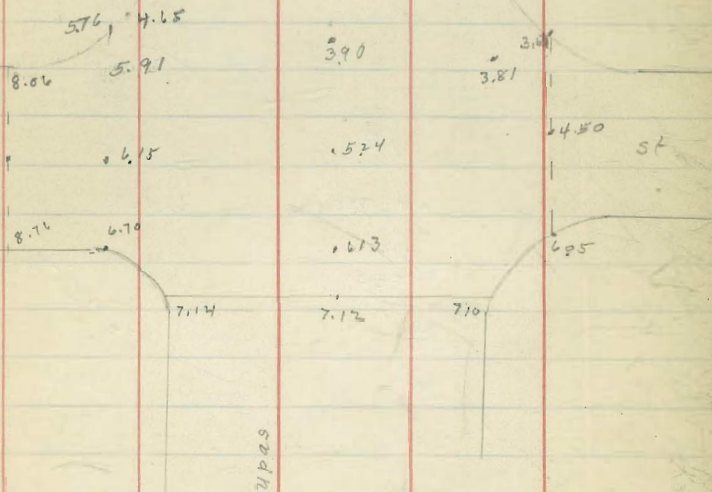 5.76 4.65
3.90
8.06 5.91
3.81
6.15 5.24 4.50 St
8.76 6.70
6.13 6.95
7.14 7.12 7.10
upas